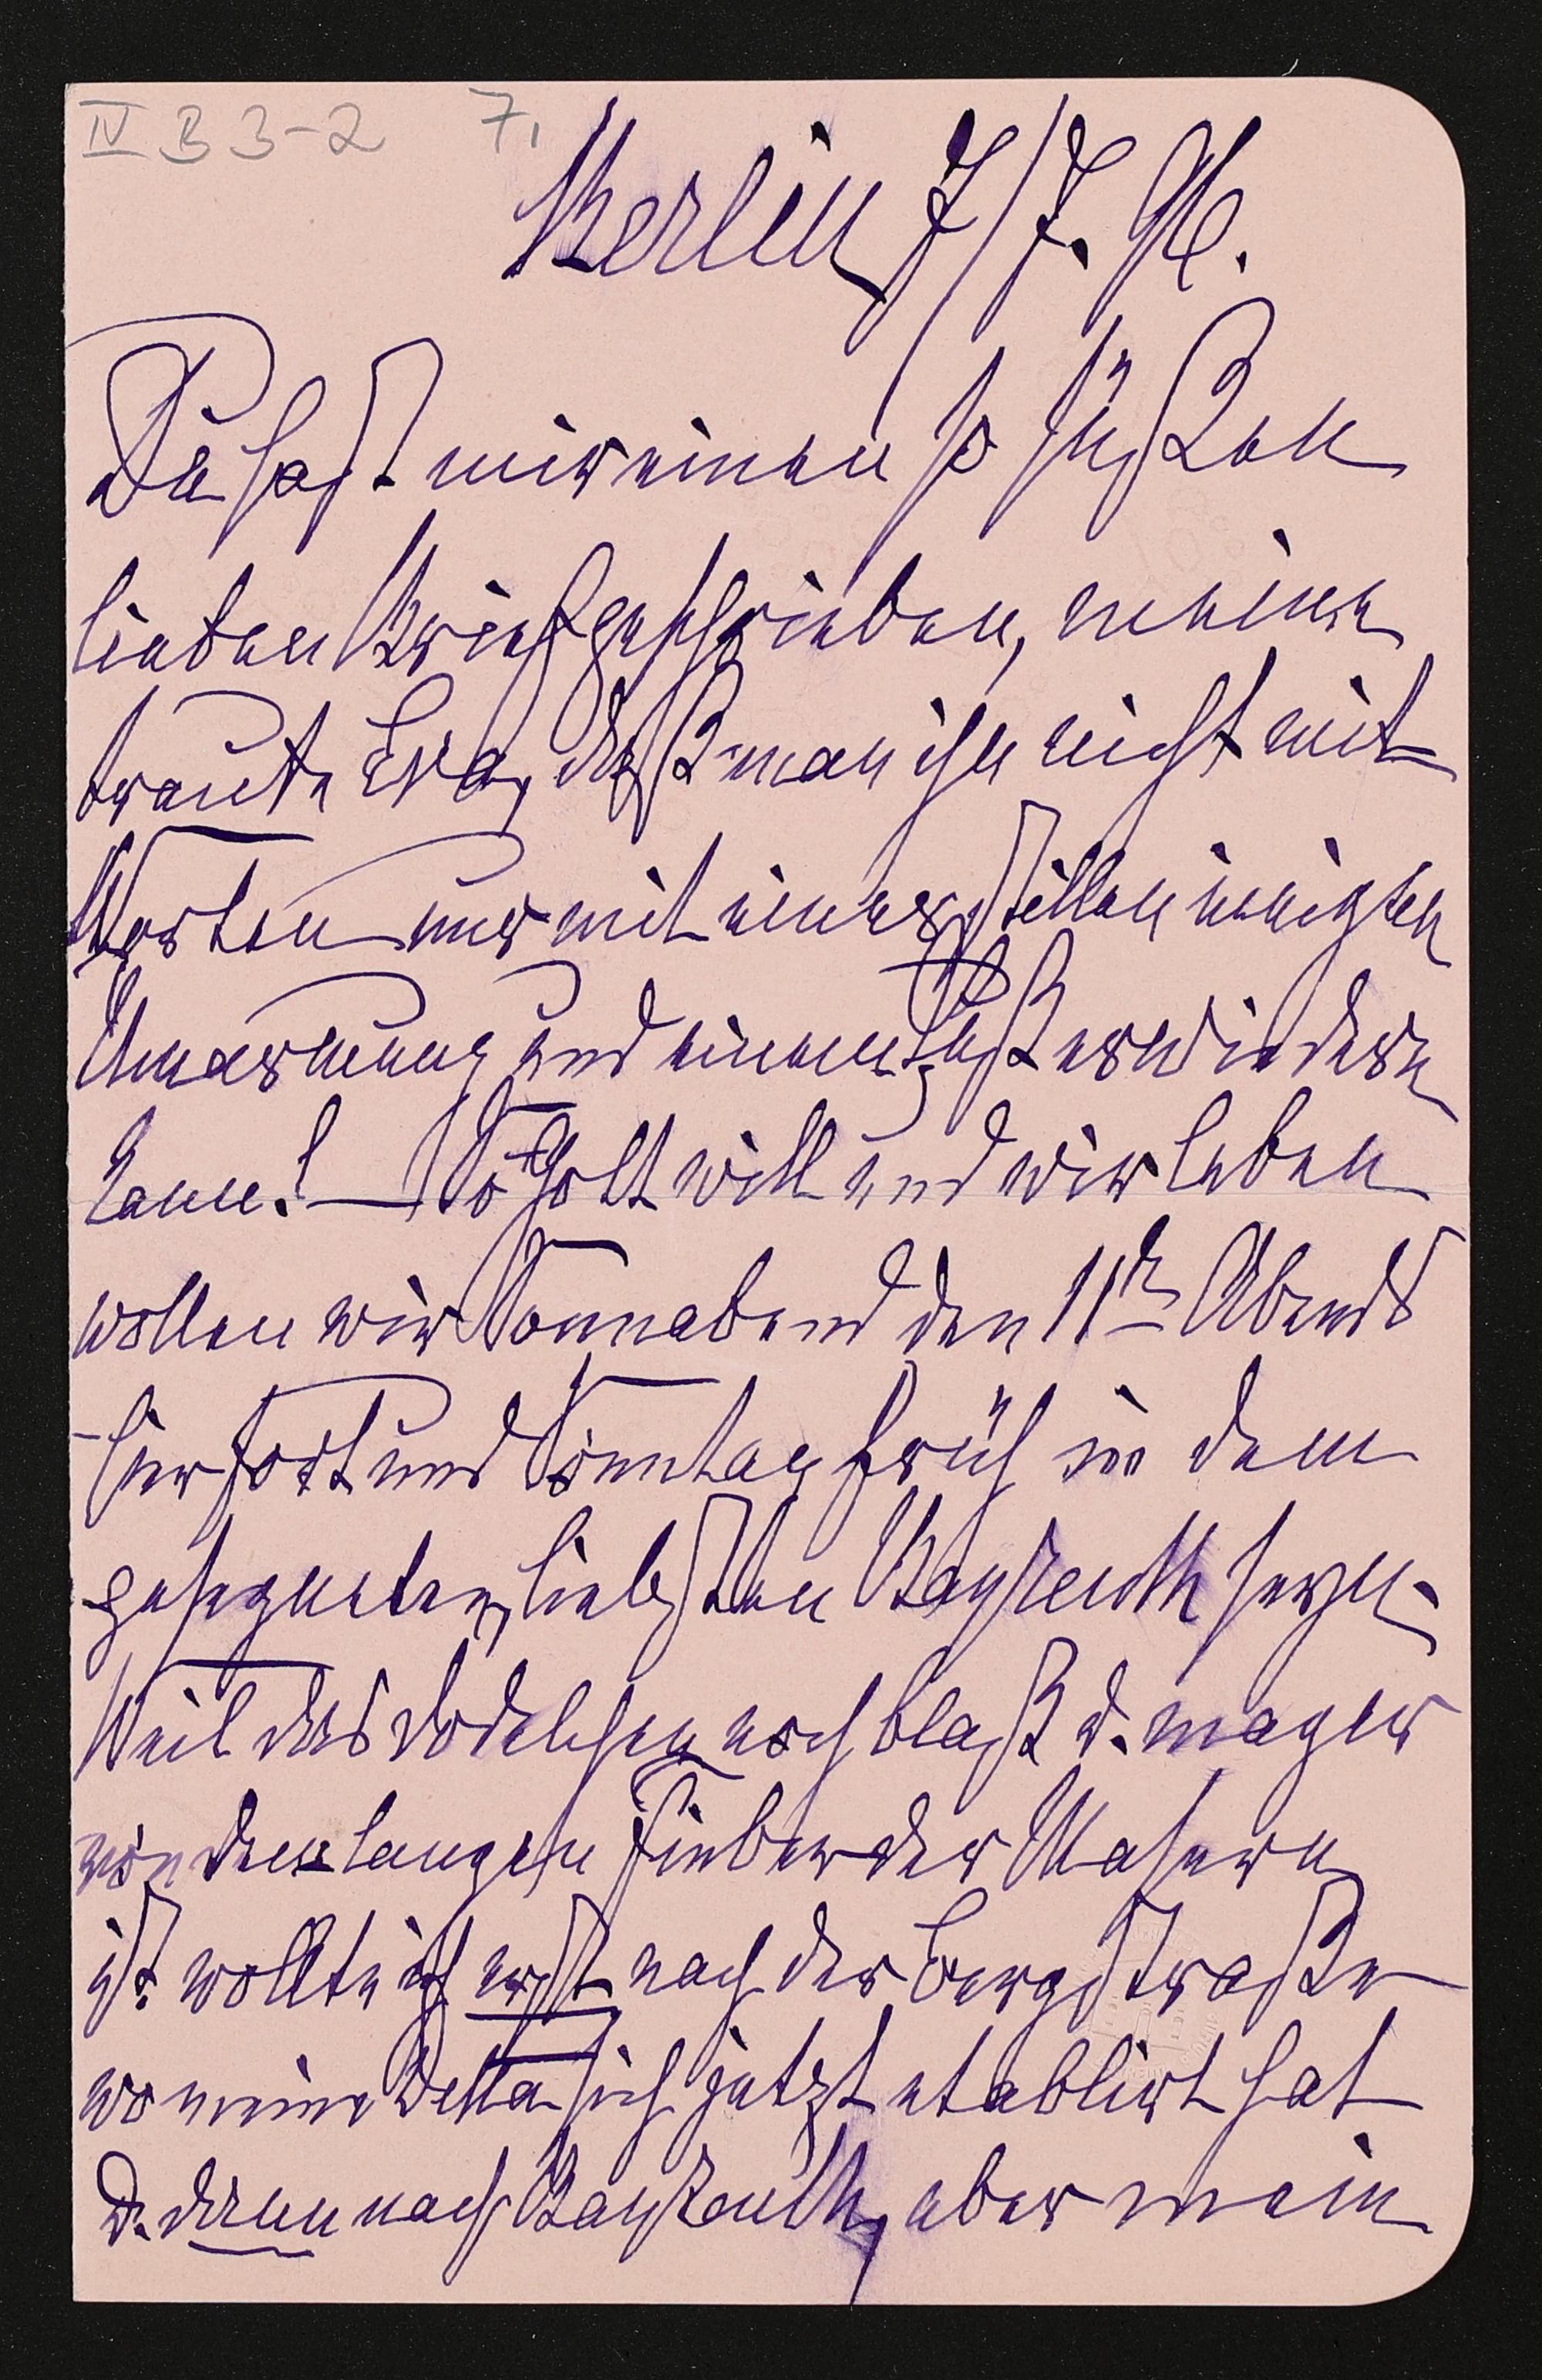 IV B 3-2 7.
Berlin 7/7. 96.
Du hast mir einen so süßen
lieben Brief geschrieben, meine
traute Eva, daß man ihn nicht mit
Worten nur mit einer stillen innigsten
Umarmung und einem Kuß erwiedern
kann! — So Gott will und wir leben
wollen wir Sonnabend den 11ten Abends
hier fort und Sonntag früh in dem
gesegneten, liebsten Bayreuth seyn.
Weil das noch blaß u. mager
von dem langen Fieber der Masern
ist, wollte ich erst nach der Bergstraße
wo meine Della sich jetzt etablirt hat
u. dann nach Bayreuth, aber mein